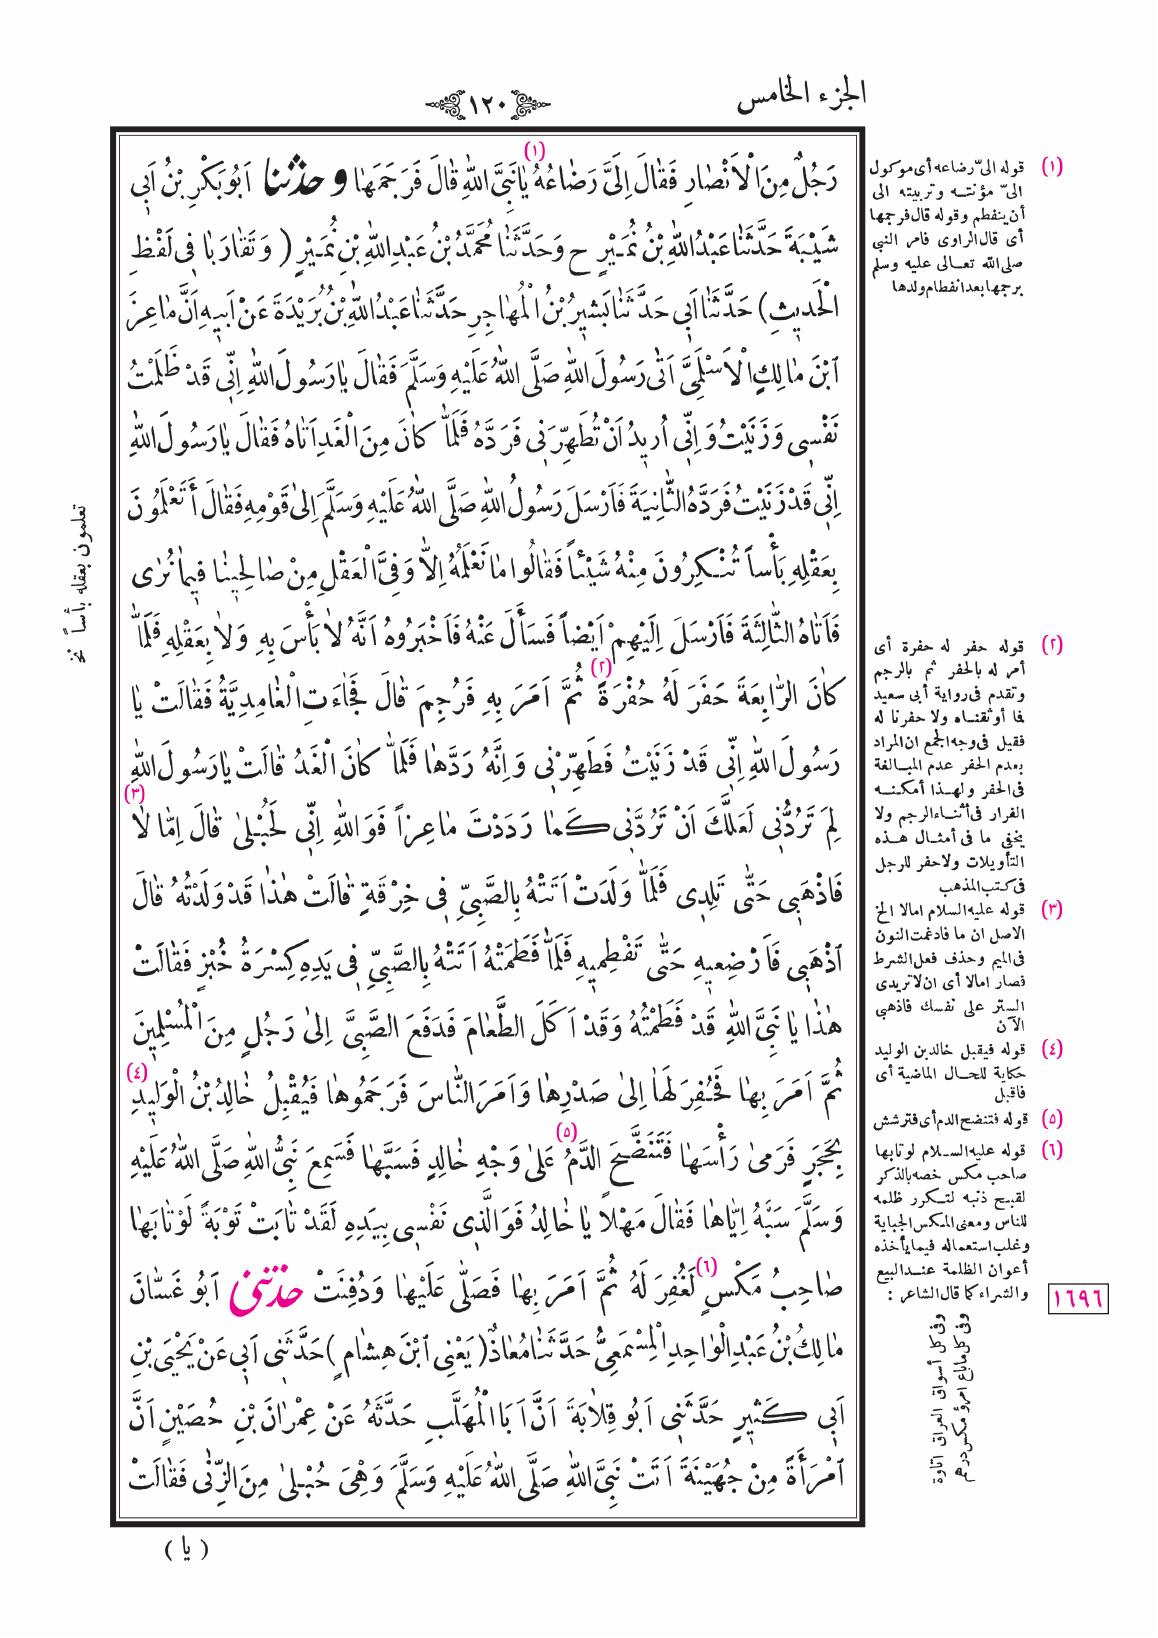 الجزء الخامس
١٢٠
رَجُلٌ مِنَ الْاَنْصَارِ فَقَالَ اِلَىَّ رَضَاعُهُ يَا نَبِىَّ اللّٰهِ قَالَ فَرَجَمَهَا و حدثنا اَبُو بَكْرِ بْنُ اَبِى
(١)
شَيْبَةَ حَدَّثَنَا عَبْدُ اللّٰهِ بْنُ نُمَيْرٍ ح وَحَدَّثَنَا مُحَمَّدُ بْنُ عَبْدِ اللّٰهِ بْنِ نُمَيْرٍ ( وَتَقَارَبَا فِى لَفْظِ
الْحَدِيثِ ) حَدَّثَنَا اَبِى حَدَّثَنَا بَشِيرُ بْنُ الْمُهَاجِرِ حَدَّثَنَا عَبْدُ اللّٰهِ بْنُ بُرَيْدَةَ عَنْ اَبِيهِ اَنَّ مَاعِزَ
ابْنَ مَالِكٍ الْاَسْلَمِىَّ اَتَى رَسُولَ اللّٰهِ صَلَّى اللّٰهُ عَلَيْهِ وَسَلَّمَ فَقَالَ يَا رَسُولَ اللّٰهِ اِنِّى قَدْ ظَلَمْتُ
نَفْسِى وَزَنَيْتُ وَاِنِّى اُرِيدُ اَنْ تُطَهِّرَنِى فَرَدَّهُ فَلَمَّا كَانَ مِنَ الْغَدِ اَتَاهُ فَقَالَ يَا رَسُولَ اللّٰهِ
اِنِّى قَدْ زَنَيْتُ فَرَدَّهُ الثَّانِيَةَ فَاَرْسَلَ رَسُولُ اللّٰهِ صَلَّى اللّٰهُ عَلَيْهِ وَسَلَّمَ اِلَى قَوْمِهِ فَقَالَ أَتَعْلَمُونَ
بِعَقْلِهِ بَأْساً تُنْكِرُونَ مِنْهُ شَيْئاً فَقَالُوا مَا نَعْلَمُهُ اِلَّا وَفِىَّ الْعَقْلِ مِنْ صَالِحِينَا فِيمَا نُرَى
فَاَتَاهُ الثَّالِثَةَ فَاَرْسَلَ اِلَيْهِمْ اَيْضاً فَسَأَلَ عَنْهُ فَاَخْبَرُوهُ اَنَّهُ لَا بَأْسَ بِهِ وَلَا بِعَقْلِهِ فَلَمَّا
كَانَ الرَّابِعَةَ حَفَرَ لَهُ حُفْرَةً ثُمَّ اَمَرَ بِهِ فَرُجِمَ قَالَ فَجَاءَتِ الْغَامِدِيَّةُ فَقَالَتْ يَا
(٢)
رَسُولَ اللّٰهِ اِنِّى قَدْ زَنَيْتُ فَطَهِّرْنِى وَاِنَّهُ رَدَّهَا فَلَمَّا كَانَ الْغَدُ قَالَتْ يَا رَسُولَ اللّٰهِ
لِمَ تَرُدُّنِى لَعَلَّكَ اَنْ تَرُدَّنِى كَمَا رَدَدْتَ مَاعِزاً فَوَاللّٰهِ اِنِّى لَحُبْلَى قَالَ اِمَّا لَا
(٣)
فَاذْهَبِى حَتَّى تَلِدِى فَلَمَّا وَلَدَتْ اَتَتْهُ بِالصَّبِىِّ فِى خِرْقَةٍ قَالَتْ هٰذَا قَدْ وَلَدْتُهُ قَالَ
اذْهَبِى فَاَرْضِعِيهِ حَتَّى تَفْطِمِيهِ فَلَمَّا فَطَمَتْهُ اَتَتْهُ بِالصَّبِىِّ فِى يَدِهِ كِسْرَةُ خُبْزٍ فَقَالَتْ
هٰذَا يَا نَبِىَّ اللّٰهِ قَدْ فَطَمْتُهُ وَقَدْ اَكَلَ الطَّعَامَ فَدَفَعَ الصَّبِىَّ اِلَى رَجُلٍ مِنَ الْمُسْلِمِينَ
ثُمَّ اَمَرَ بِهَا فَحُفِرَ لَهَا اِلَى صَدْرِهَا وَاَمَرَ النَّاسَ فَرَجَمُوهَا فَيُقْبِلُ خَالِدُ بْنُ الْوَلِيدِ
(٤)
بِحَجَرٍ فَرَمَى رَأْسَهَا فَتَنَضَّحَ الدَّمُ عَلَى وَجْهِ خَالِدٍ فَسَبَّهَا فَسَمِعَ نَبِىُّ اللّٰهِ صَلَّى اللّٰهُ عَلَيْهِ
(٥)
وَسَلَّمَ سَبَّهُ اِيَّاهَا فَقَالَ مَهْلًا يَا خَالِدُ فَوَالَّذِى نَفْسِى بِيَدِهِ لَقَدْ تَابَتْ تَوْبَةً لَوْ تَابَهَا
صَاحِبُ مَكْسٍ لَغُفِرَ لَهُ ثُمَّ اَمَرَ بِهَا فَصَلَّى عَلَيْهَا وَدُفِنَتْ حدثنى اَبُو غَسَّانَ
(٦)
مَالِكُ بْنُ عَبْدِ الْوَاحِدِ الْمِسْمَعِىُّ حَدَّثَنَا مُعَاذٌ ( يَعْنِى ابْنَ هِشَامٍ ) حَدَّثَنِى اَبِى عَنْ يَحْيَى بْنِ
اَبِى كَثِيرٍ حَدَّثَنِى اَبُو قِلَابَةَ اَنَّ اَبَا الْمُهَلَّبِ حَدَّثَهُ عَنْ عِمْرَانَ بْنِ حُصَيْنٍ اَنَّ
امْرَأَةً مِنْ جُهَيْنَةَ اَتَتْ نَبِىَّ اللّٰهِ صَلَّى اللّٰهُ عَلَيْهِ وَسَلَّمَ وَهِىَ حُبْلَى مِنَ الزِّنَى فَقَالَتْ
( يا )
(١) قوله الىّ رضاعه أى موكول
الىّ مؤنتـه وتربيته الى
أن ينفطم وقوله قال فرجمها
أى قال الراوى فامر النبى
صلى الله تعـالى عليه وسلم
برجمها بعد انفطام ولدها
(٢) قوله حفر له حفرة أى
أمر له بالحفر ثم بالرجم
وتقدم فى رواية أبى سعيد
فما أوثقناه ولا حفرنا له
فقيل فى وجه الجمع ان المراد
بعدم الحفر عدم المبـالغة
فى الحفر ولهـذا أمكنـه
الفرار فى أثنـاء الرجم ولا
يخفى ما فى أمثـال هـذه
التأويلات ولا حفر للرجل
فى كتب المذهب
(٣) قوله عليه السلام امالا الخ
الاصل ان ما فادغمت النون
فى الميم وحذف فعل الشرط
فصار امالا أى ان لا تريدى
الستر على نفسك فاذهبى
الآن
(٤) قوله فيقبل خالد بن الوليد
حكاية للحـال الماضية أى
فاقبل
(٥) قوله فتنضح الدم أى فترشش
(٦) قوله عليه السـلام لو تابها
صاحب مكس خصه بالذكر
لقبح ذنبه لتـكرر ظلمه
للناس ومعنى المكس الجباية
وغلب استعماله فيما يأخذه
أعوان الظلمة عنـد البيع
والشراء كما قال الشاعر :
وفى كل أسواق العراق اتاوة
وفى كل ماباع امرؤ مكس درهم
١٦٩٦
تعلمون بعقله بأساً نخ